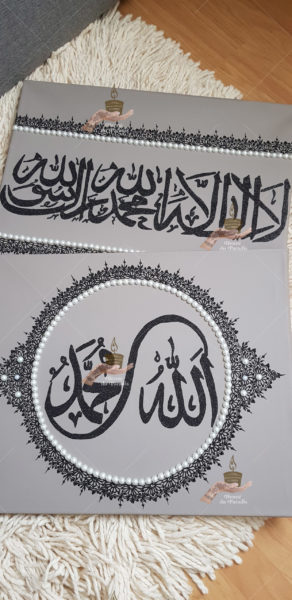 لا إله إلا الله محمد رسول الله
الله محمد